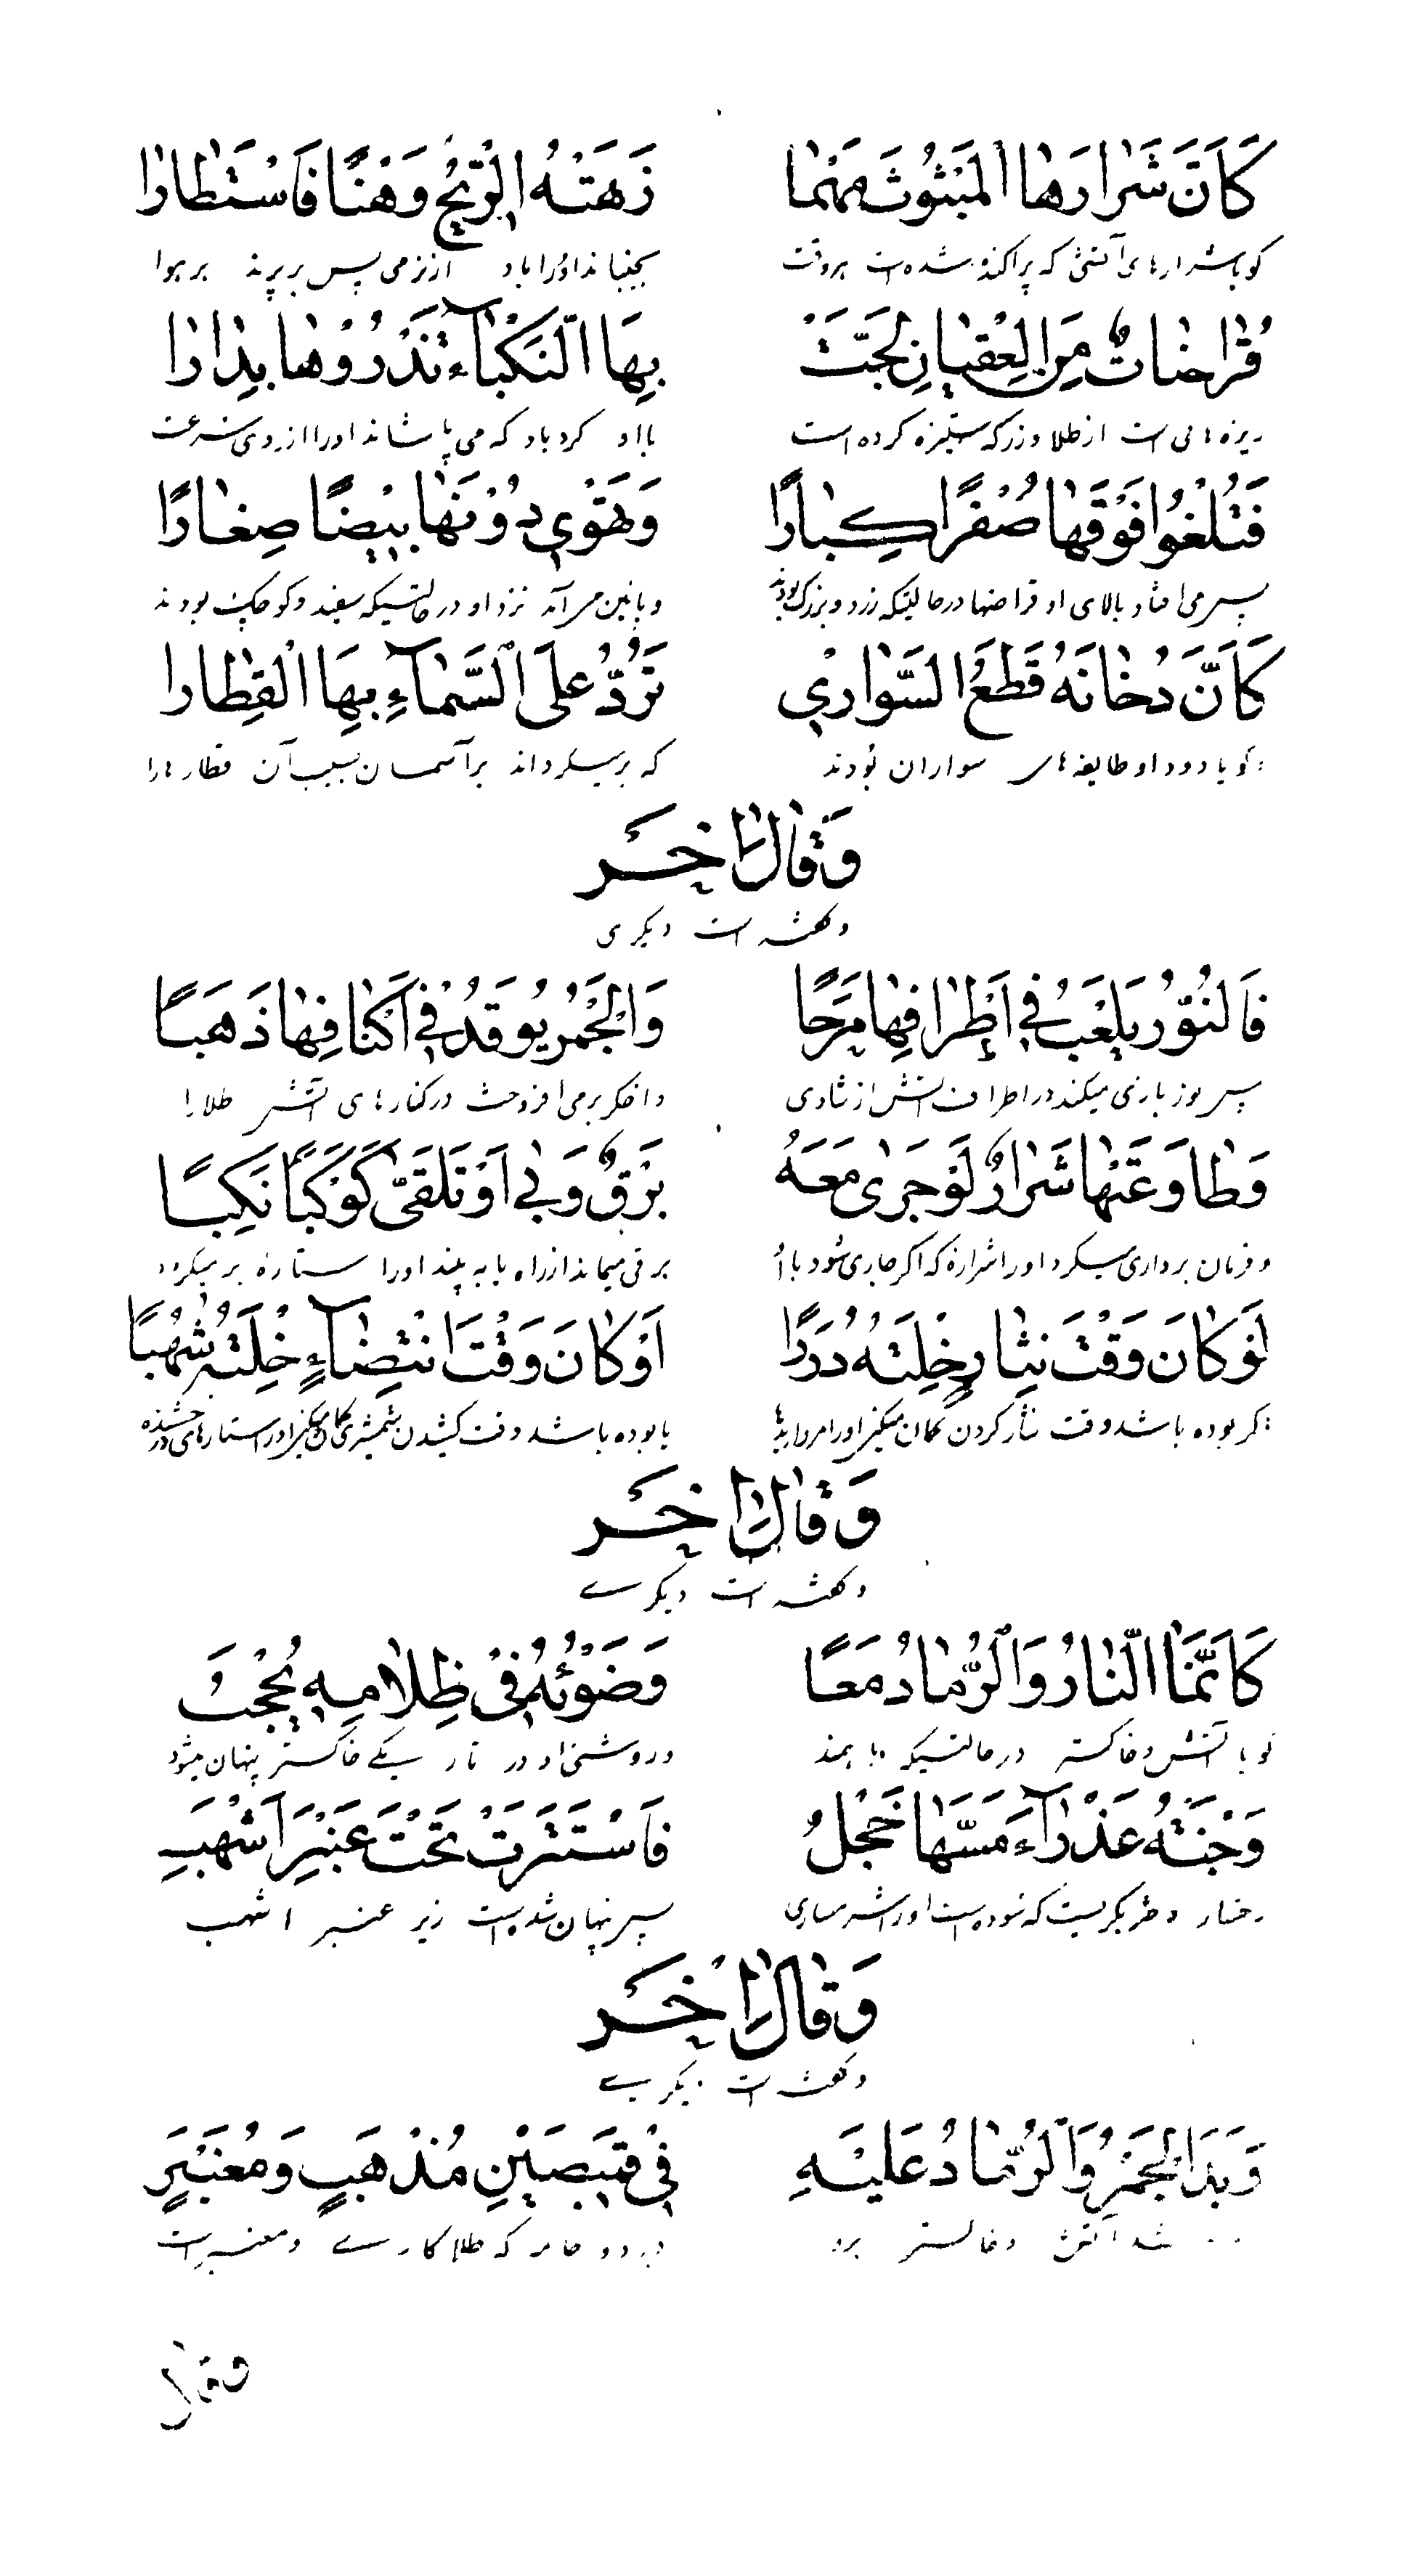 كَأَنَّ شَرَارَهَا الْمَبْثُوثَ مَهْمَا زَهَتْهُ الرِّيحُ وَهْنًا فَاسْتَطَارَا
گویا شرارهای آتشی که پراکنده شده است هر وقت بجنباند او را باد از نرمی پس بر پرند بر هوا
قُرَاضَاتٌ مِنَ الْعِقْيَانِ لَجَّتْ بِهَا النَّكْبَاءُ تَذْرُوْهَا بِدَارَا
ریزه هایی است از طلا و زر که ستیزه کرده است با او گردباد که می پاشاند او را از روی سرعت
فَتُلْغُوا فَوْقَهَا صُفْرًا كِبَارًا وَتَهْوِي دُوْنَهَا بِيْضًا صِغَارًا
پس می افتاد بالای او قراضها در حالتیکه زرد و بزرگ بودند و پائین می آمد نزد او در حالتیکه سفید و کوچک بودند
كَأَنَّ دُخَانَهُ قَطَعُ السَّوَارِي تَرُدُّ عَلَى السَّمَآءِ بِهَا الْقِطَارَا
گویا دود او طایفه های سواران بودند که بر میگرداند بر آسمان بسبب آن قطار ها را
وَقَالَ اٰخَر
و گفته است دیگری
فَالنُّوْرُ يَلْعَبُ فِي أَطْرَافِهَا مَرَحًا وَالْجَمْرُ يُوقَدُ فِي أَكْنَافِهَا ذَهَبًا
پس نور بازی میکند در اطراف آتش از شادی و اخگر بر می افروخت در کنارهای آتش طلا را
وَطَاوَعَتْهَا شَرَارٌ لَوْ جَرٰى مَعَهُ بَرْقٌ وَنٰى أَوْ تَلَقّٰى كَوْكَبًا نَكِبَا
و فرمان برداری میکرد او را شراره که اگر جاری شود با او برقی میماند از راه یا به بیند او را ستاره بر میگردد
لَوْ كَانَ وَقْتَ نِثَارٍ خِلْتَهُ دُرَرًا أَوْ كَانَ وَقْتَ انْتِضَآءٍ خِلْتَهُ شُهُبًا
گر بوده باشد وقت نثار کردن گمان میکنی او را مرواریدها یا بوده باشد وقت کشیدن شمشیری گمان میکنی او را ستارهای درخشنده
وَقَالَ اٰخَر
و گفته است دیگرے
كَأَنَّمَا النَّارُ وَالرَّمَادُ مَعًا وَضَوْئُهُ فِيْ ظِلَامِهِ يُحْجَبُ
گویا آتش و خاکستر در حالتیکه با همند و روشنی او در تاریکی خاکستر پنهان میشود
وَجْنَتُهُ عَذْرَآءَ مَسَّهَا خَجْلُ فَاسْتَتَرَتْ تَحْتَ عَنْبَرٍ أَشْهَبِ
رخسار دختر بکریست که نموده است او را شرمساری پس پنهان شده است زیر عنبر اشهب
وَقَالَ اٰخَر
و گفته است دیگرے
وَبَدَا الْجَمْرُ وَالرَّمَادُ عَلَيْهِ فِيْ قَمِيصَيْنِ مُذْهَبٍ وَمُعَنْبَرٍ
شد آتش و خاکستر برو در دو جامه که طلا کارے و معنبر است
وقال